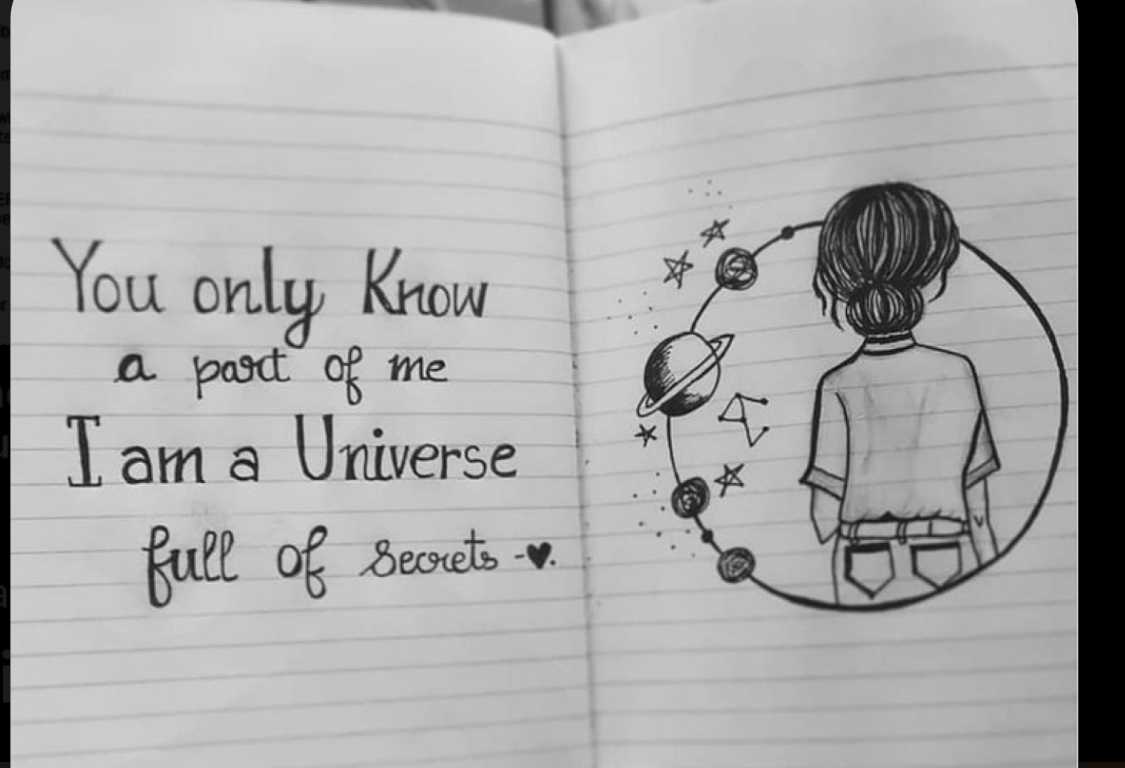 You only Know
a part of me
I am a Universe
full of secrets -♥.